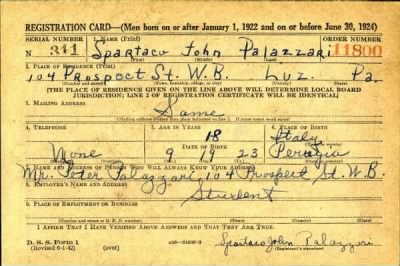 REGISTRATION CARD—(Men born on or after January 1, 1922 and on or before June 30, 1924)
SERIAL NUMBER 1. NAME (Print) ORDER NUMBER
N 311 Spartaco John Palazzari 11800
2. PLACE OF RESIDENCE (Print)
104 Prospect St. W.B. Luz. Pa.
[THE PLACE OF RESIDENCE GIVEN ON THE LINE ABOVE WILL DETERMINE LOCAL BOARD
JURISDICTION; LINE 2 OF REGISTRATION CERTIFICATE WILL BE IDENTICAL]
3. MAILING ADDRESS
Same
4. TELEPHONE 5. AGE IN YEARS 6. PLACE OF BIRTH
18 Italy
None 9 19 23 Perugia
7. NAME AND ADDRESS OF PERSON WHO WILL ALWAYS KNOW YOUR ADDRESS
Mr. Peter Palazzari, 104 Prospect St. W.B.
8. EMPLOYER'S NAME AND ADDRESS
Student
9. PLACE OF EMPLOYMENT OR BUSINESS
I AFFIRM THAT I HAVE VERIFIED ABOVE ANSWERS AND THAT THEY ARE TRUE.
D. S. S. Form 1
(Revised 6-1-42) (over) Spartaco John Palazzari